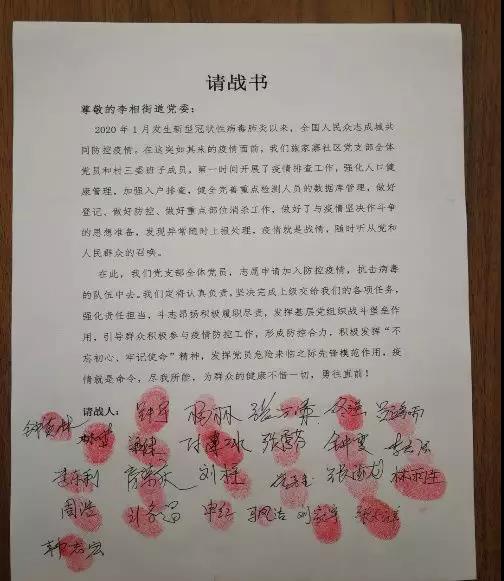 请战书
尊敬的李相街道党委：
2020年1月发生新型冠状性病毒肺炎以来，全国人民众志成城共
同防控疫情。在这突如其来的疫情面前，我们施家寨社区党支部全体
党员和村三委班子成员，第一时间开展了疫情排查工作，强化人口健
康管理，加强入户排查，健全完善重点检测人员的数据库管理，做好
登记、做好防控、做好重点部位消杀工作，做好了与疫情坚决作斗争
的思想准备，发现异常随时上报处理，疫情就是战情，随时听从党和
人民群众的召唤。
在此，我们党支部全体党员，志愿申请加入防控疫情，抗击病毒
的队伍中去。我们定将认真负责，坚决完成上级交给我们的各项任务，
强化责任担当，斗志昂扬积极履职尽责，发挥基层党组织战斗堡垒作
用，引导群众积极参与疫情防控工作，形成防控合力，积极发挥“不
忘初心、牢记使命”精神，发挥党员危险来临之际先锋模范作用，疫
情就是命令，尽我所能，为群众的健康不惜一切，勇往直前！
请战人： 杨丽
钟雯
刘柱 林雨生
周浩 申红
韩志宏